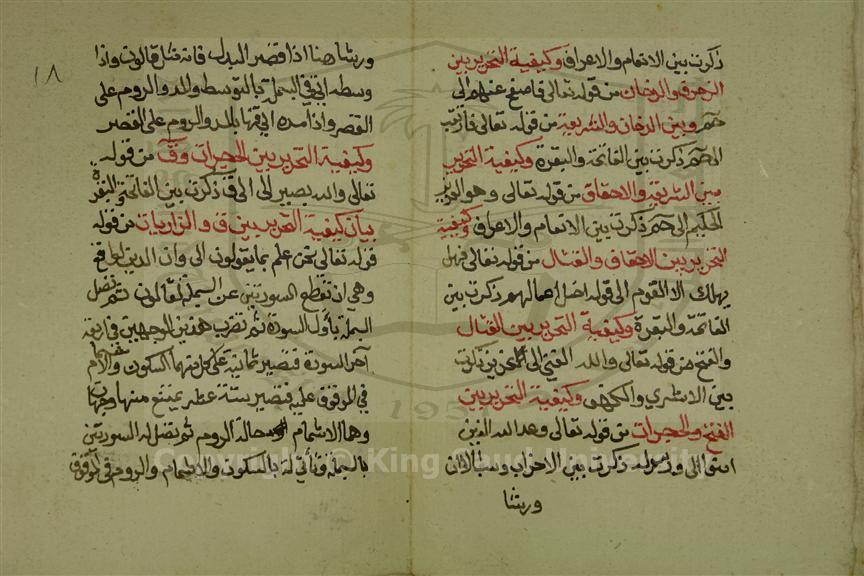 ذكرت بين الانعام والاعراف وكيفية التحرير بين
الزخرف والدخان من قوله تعالى فاصفح عنهم الى
حم وبين الدخان والشريعة من قوله تعالى فارتقب
الى حم ذكرت بين الفاتحة والبقرة وكيفية التحرير
بين الشريعة والاحقاف من قوله تعالى وهو العزيز
الحكيم الى حم ذكرت بين الانعام والاعراف وكيفية
التحرير بين الاحقاف والقتال من قوله تعالى فهل
يهلك الا القوم الى قوله اضل اعمالهم ذكرت بين
الفاتحة والبقرة وكيفية التحرير بين القتال
والفتح من قوله تعالى والله الغني الى ذكرت
بين الاسرى والكهف وكيفية التحرير بين
الفتح والحجرات من قوله تعالى وعد الله الذين
الى ورسوله ذكرت بين الاحزاب وسبأ الا ان
ورشا
١٨
ورشا هنا اذا قصر البدل فانه مثل قالون واذا
وسطه اتى في البسملة بالتوسط والمد والروم على
القصر واذا مده اتى فيها بالمد والروم على القصر
وكيفية التحرير بين الحجرات وق من قوله
تعالى والله بصير الى ق ذكرت بين الفاتحة والبقرة
بيان كيفية التحرير بين ق والذاريات من قوله
قوله تعالى نحن اعلم بما يقولون الى وان الدين لواقع
وهي ان تقطع السورتين عن البسملة لقالون ثم تصل
البسملة بأول السورة ثم تضرب هذين الوجهين في اربعة
آخر السورة فتصير ثمانية على كل منهما السكون والاشمام
في الموقوف عليه فتصير ستة عشر يمتنع منها وجهان
وهما الاشمام حالة الروم ثم تصل له السورتين
بالبسملة فتأتي له بالسكون والاشمام والروم في الموقوف
Copyright © King Saud University
1957